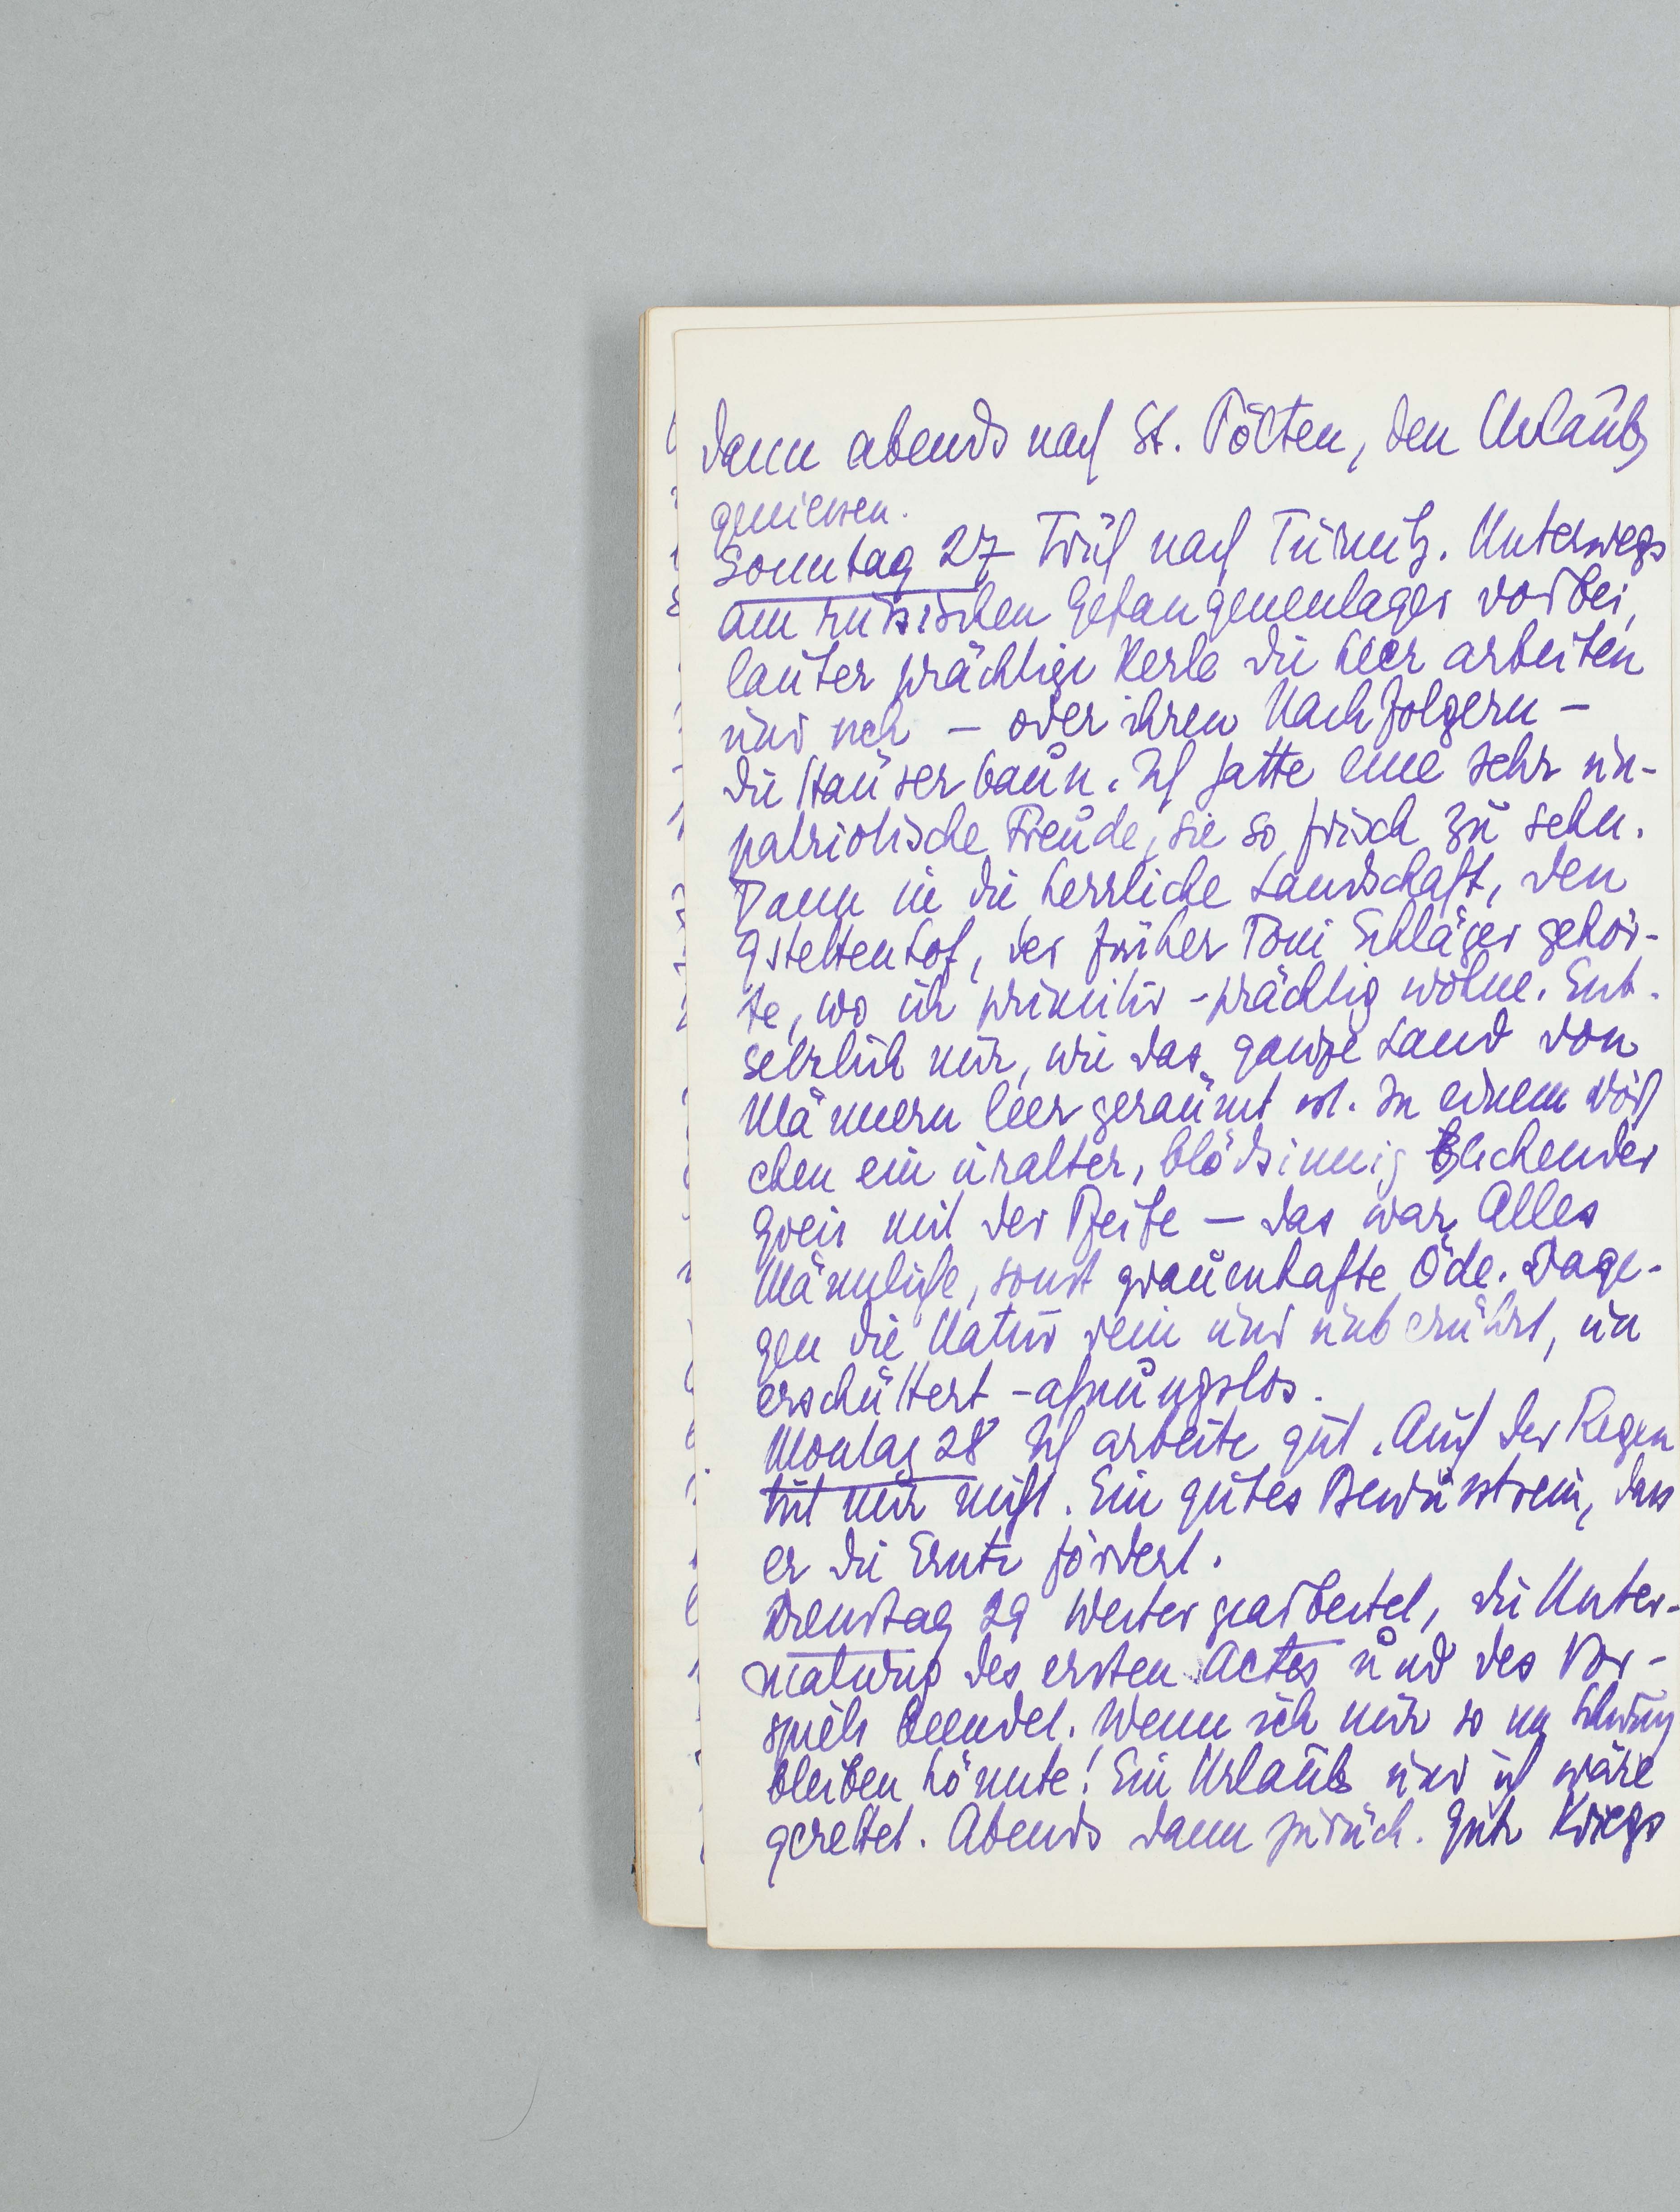 dann abends nach St. Pölten, den Urlaub
geniessen.
Sonntag 27 Früh nach Türnitz. Unterwegs
am russischen Gefangenenlager vorbei,
lauter prächtige Kerle die hier arbeiten
und sich – oder ihren Nachfolgern –
die Häuser baun. Ich hatte eine sehr un-
patriotische Freude, sie so frisch zu sehn.
Dann in die herrliche Landschaft, den
Gstettenhof, der früher Toni Schläger gehör-
te, wo ich primitiv-prächtig wohne. Ent-
setzlich nur, wie das ganze Land von
Männern leer geräumt ist. In einem Dörf
chen ein uralter, blödsinnig lachender
Greis mit der Pfeife – das war Alles
Männliche, sonst grauenhafte Öde. Dage-
gen die Natur rein und unberührt, un
erschüttert-ahnungslos.
Montag 28 Ich arbeite gut. Auch der Regen
tut mir nicht. Ein gutes Bewusstsein, dass
er die Ernte fördert.
Dienstag 29 Weiter gearbeitet, die Unter-
malung des ersten Actes und des Vor-
spiels beendet. Wenn ich nur so im Schwung
bleiben könnte! Ein Urlaub und ich wäre
gerettet. Abends dann zurück. Gute Kriegs